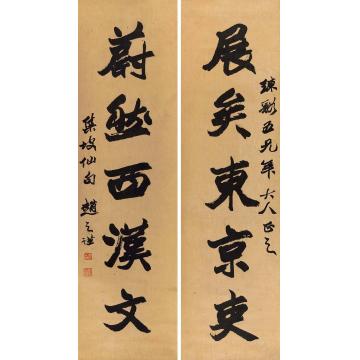 五兄年大人正之
展矣東京吏
蔚然西漢文
集坡仙句 趙之謙